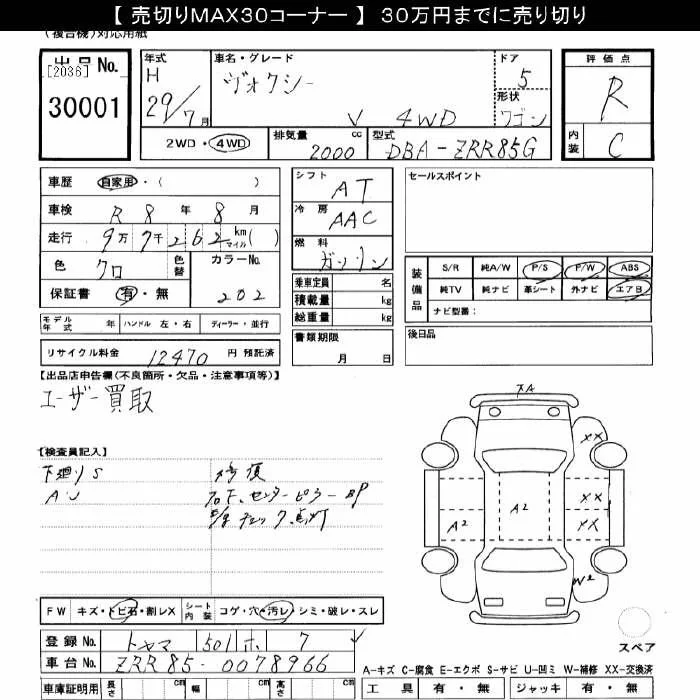 【 売切りMAX30コーナー 】 30万円までに売り切り
(複合機)対応用紙
出品No.
[2036]
30001
年式
H
29/7月
車名・グレード
ヴォクシー
4WD
ドア
5
形状
ワゴン
評価点
R
内装
C
2WD・4WD
排気量
2000 cc
型式
DBA-ZRR85G
車歴 自家用・( )
車検 R 8 年 8 月
走行 9万7千262 km マイル( )
色 クロ 色替
カラーNo.
202
保証書 有・無
シフト
AT
冷房
AAC
燃料
ガソリン
乗車定員 名
積載量 kg
総重量 kg
セールスポイント
装備品
S/R 純A/W P/S P/W ABS
純TV 純ナビ 革シート 外ナビ エアB
ナビ型番:
モデル年式 年 ハンドル 左・右 ディーラー・並行
リサイクル料金 12470 円 預託済
書類期限
月 日
後日品
【出品店申告欄(不良箇所・欠品・注意事項等)】
ユーザー買取
【検査員記入】
下廻りS 修復
AU
右下、センターピラーBP
チェック点灯
XA
XX
XX
XX
A2
A2
W2
FW キズ・トビ石・割レX
シート内装 コゲ・穴・汚レ・シミ・破レ・スレ
登録No. トヤマ 501 ホ 7
車台No. ZRR85-0078966
車庫証明用 長さ cm 幅 cm 高さ cm
スペア
A-キズ C-腐食 E-エクボ S-サビ U-凹ミ W-補修 XX-交換済
工具 有・無 ジャッキ 有・無